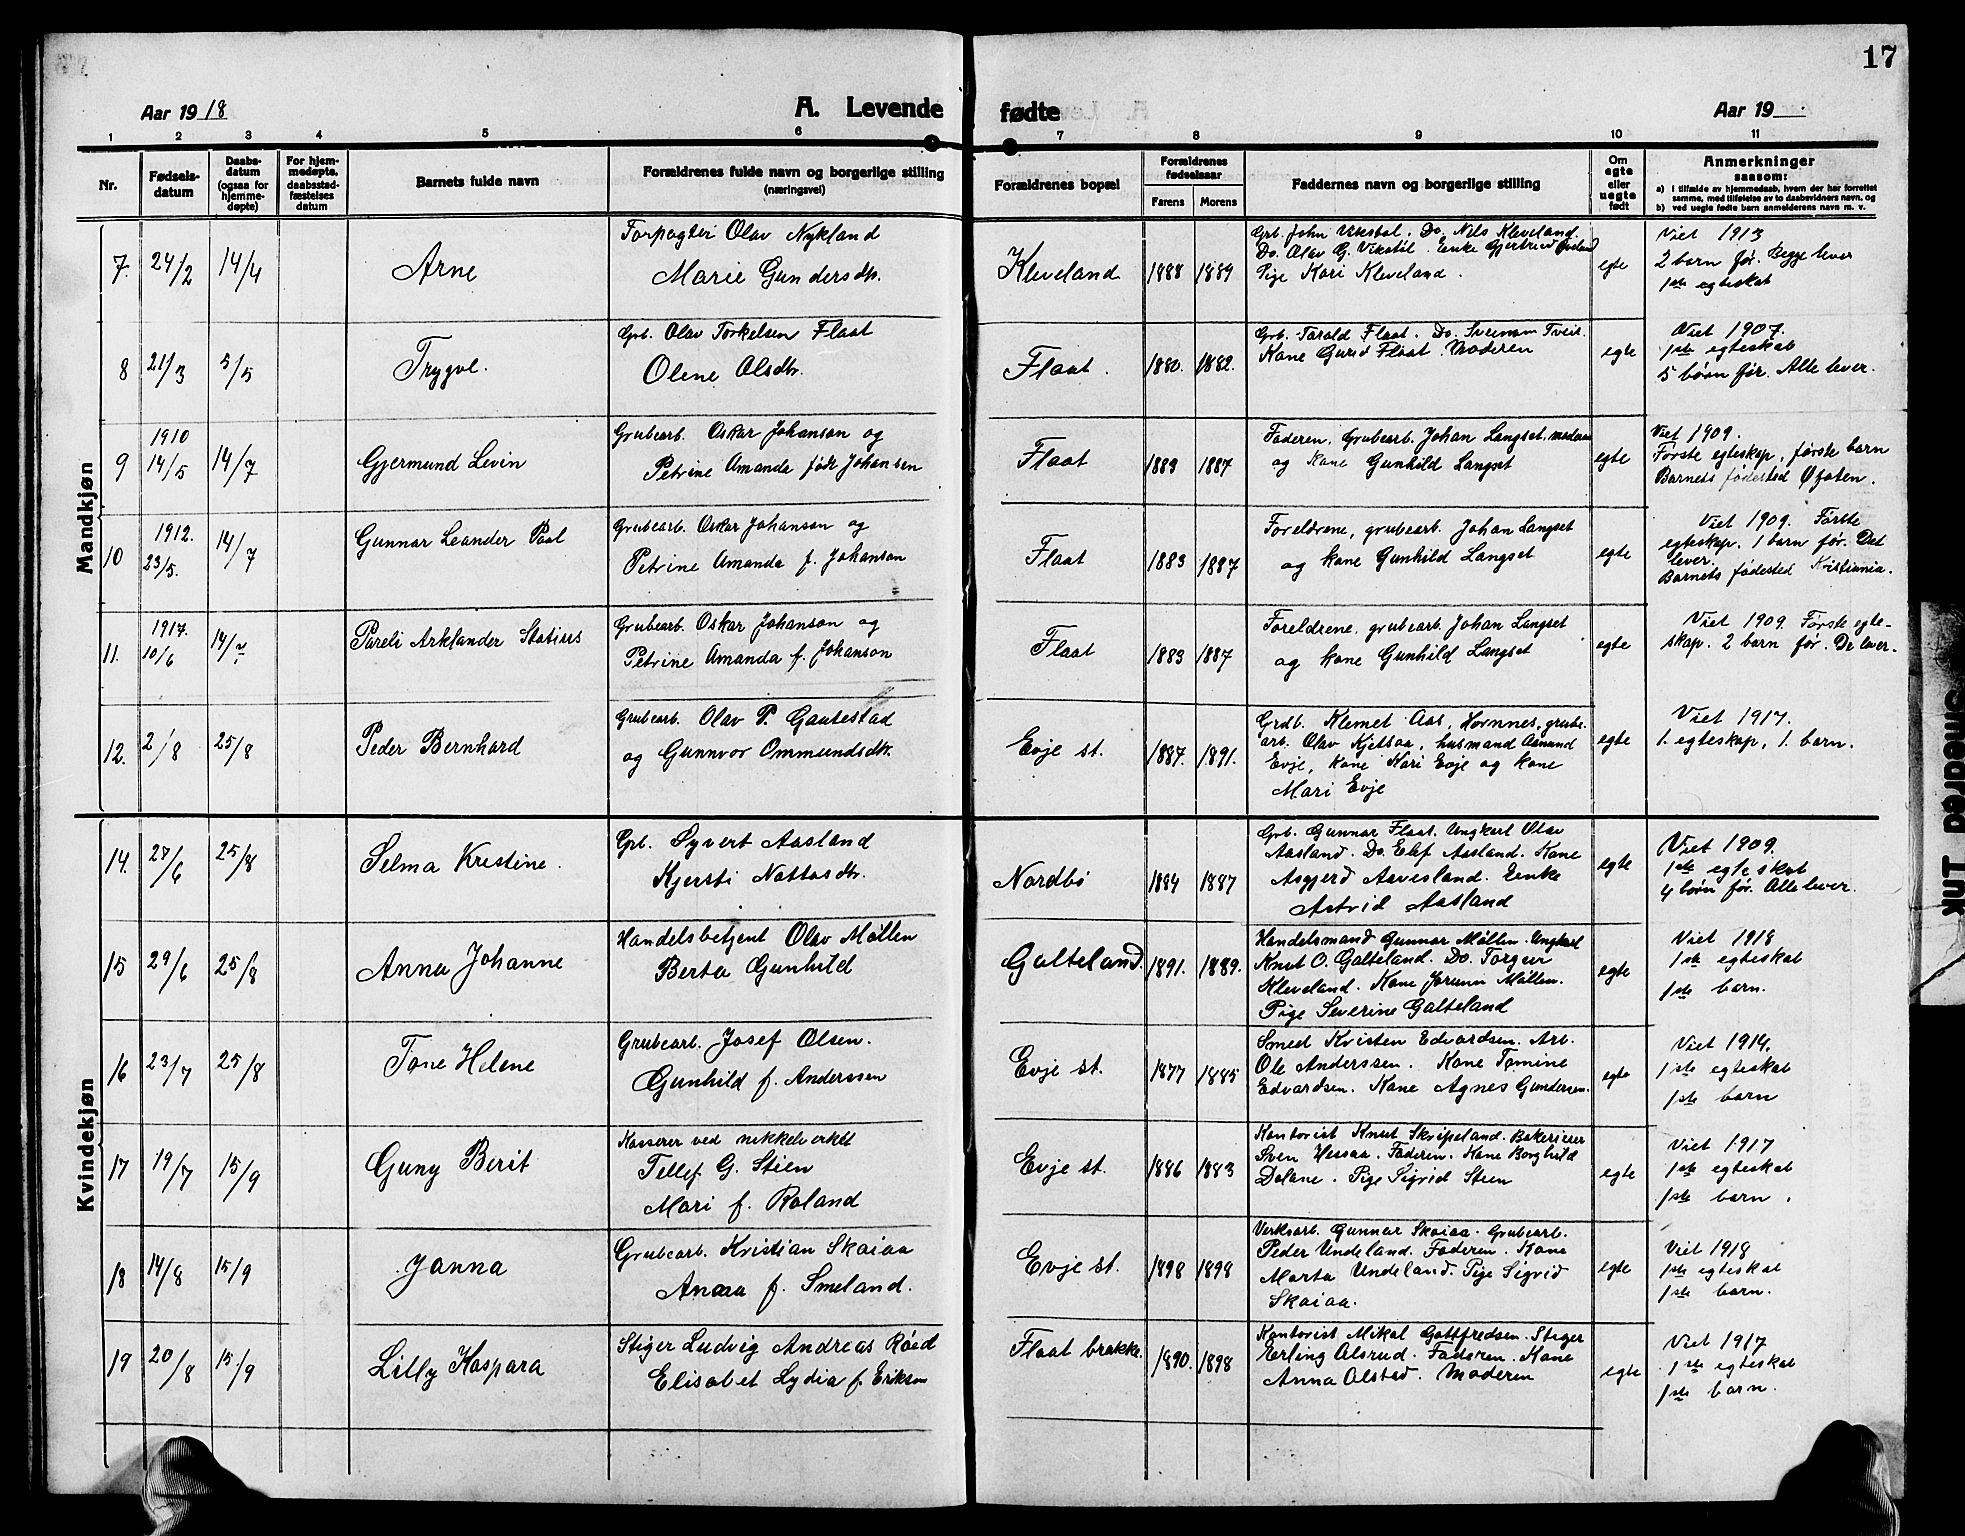 17
Aar 1918
A. Levende
fødte
Aar 19
1 2 3 4 5 6 7 8 9 10 11
Nr.
Fødsels-
datum
Daabs-
datum
(ogsaa for
hjemme-
døpte)
For hjem-
medøpte,
daabsstad-
fæstelses
datum
Barnets fulde navn
Forældrenes fulde navn og borgerlige stilling
(næringsvei)
Forældrenes bopæl
Forældrenes
fødselsaar
Farens Morens
Faddernes navn og borgerlige stilling
Om
egte
eller
uegte
født
Anmerkninger
saasom:
a) i tilfælde av hjemmedaab, hvem der har forrettet
samme, med tilføielse av to daabsvidners navn, og
b) ved uegte fødte barn anmelderens navn m. v.
Mandkjøn
7. 24/2 14/4 Arne
Forpagter Olav Nykland
Marie Gundersdtr.
Kleveland 1888 1889
Grb. John Vikstøl. Do. Nils Kleveland.
Do. Olav G. Vikstøl. Enke Gjertrud
Pige Kari Kleveland.
egte
Viet 1913
2 barn før. Begge lever
1ste egteskab
8 21/3 5/5 Trygve.
Grb. Olav Torkelsen Flaat
Olene Olsdtr.
Flaat. 1880. 1882.
Grb. Tarald Flaat. Do. Sveinung Tveit.
Kane Gurid Flaat. Moderen
egte
Viet 1907.
1ste egteskab
5 børn før. Alle lever.
9 1910 14/5 14/7 Gjermund Levin
Grubearb. Oskar Johanson og
Petrine Amanda født Johansen
Flaat 1883 1887
Faderen, Grubearb. Johan Langset, moderen
og kone Gunhild Langset
egte
Viet 1909.
Første egteskap, første barn
Barnets fødested Ofoten.
10 1912. 23/5. 14/7 Gunnar Leander Paal
Grubearb. Oskar Johanson og
Petrine Amanda f. Johanson
Flaat 1883 1887
Foreldrene, grubearb. Johan Langset
og kone Gunhild Langset
egte
Viet 1909. Første
egteskap. 1 barn før. Det
lever.
Barnets fødested Kristiania.
11. 1917. 10/6 14/7 Pareli Arklander
Grubearb. Oskar Johanson og
Petrine Amanda f. Johanson
Flaat 1883 1887
Foreldrene, grubearb. Johan Langset
og kone Gunhild Langset
egte
Viet 1909. Første egte-
skap. 2 barn før. De lever.
12. 2/8 25/8 Peder Bernhard
Grubearb. Olav P. Gautestad
og Gunnvor Ommundsdtr.
Evje st. 1887. 1891.
Grdb. Klemet Aas, Hornnes, grube-
arb. Olav Kjetsaa, husmand Asmund
Evje, kone Kari Evje og kone
Mari Evje
egte
Viet 1917.
1. egteskap, 1. barn.
Kvindekjøn
14. 27/6 25/8 Selma Kristine.
Grb. Syvert Aasland
Kjersti Nottosdtr.
Nordbø 1884 1887
Grb. Gunnar Flaat. Ungkarl Olav
Aasland. Do. Elef Aasland. Kone
Asgjerd Aavesland. Enke
Astrid Aasland
egte
Viet 1909.
1ste egteskab
4 børn før. Alle lever.
15 29/6 25/8 Anna Johanne
Handelsbetjent Olav Møllen
Berta Gunhild
Galteland. 1891. 1889.
Handelsmand Gunnar Møllen. Ungkarl
Knut O. Galteland. Do. Torgeir
Kleveland. Kone Jorunn Møllen.
Pige Severine Galteland
egte
Viet 1918
1ste egteskab
1ste barn.
16 23/7 25/8 Tone Helene
Grubearb. Josef Olsen.
Gunhild f. Anderssen
Evje st. 1877 1885
Smed Kristen Edvardsen. Arb.
Ole Anderssen. Kone Tomine
Edvardsen. Kone Agnes Gundersen.
egte
Viet 1914.
1ste egteskab
1ste barn
17 19/7 15/9 Guny Berit
Kasserer ved nikkelverket
Tellef G. Stien
Mari f. Roland
Evje st. 1886 1883
Kontorist Knut Skripeland. Bakerieier
Sven Hessaa. Faderen. Kone Borghild
Dolane. Pige Sigrid Steen
egte
Viet 1917
1ste egteskab
1ste barn.
18 14/8 15/9 Janna
Grubearb. Kristian Skaiaa
Anna f. Smeland.
Evje st. 1898 1898
Verksarb. Gunnar Skaiaa. Grubearb.
Peder Undeland. Faderen. Kone
Marta Undeland. Pige Sigrid
Skaiaa.
egte
Viet 1918
1ste egteskab
1ste barn.
19 20/8 15/9 Lilly Kaspara
Stiger Ludvig Andreas Røed
Elisabet Lydia f. Erikson
Flaat brakke. 1890. 1898
Kontorist Mikal Gottfredsen. Stiger
Erling Alsrud. Faderen. Kone
Anna Alstad. Moderen
egte
Viet 1917
1ste egteskab
1ste barn.